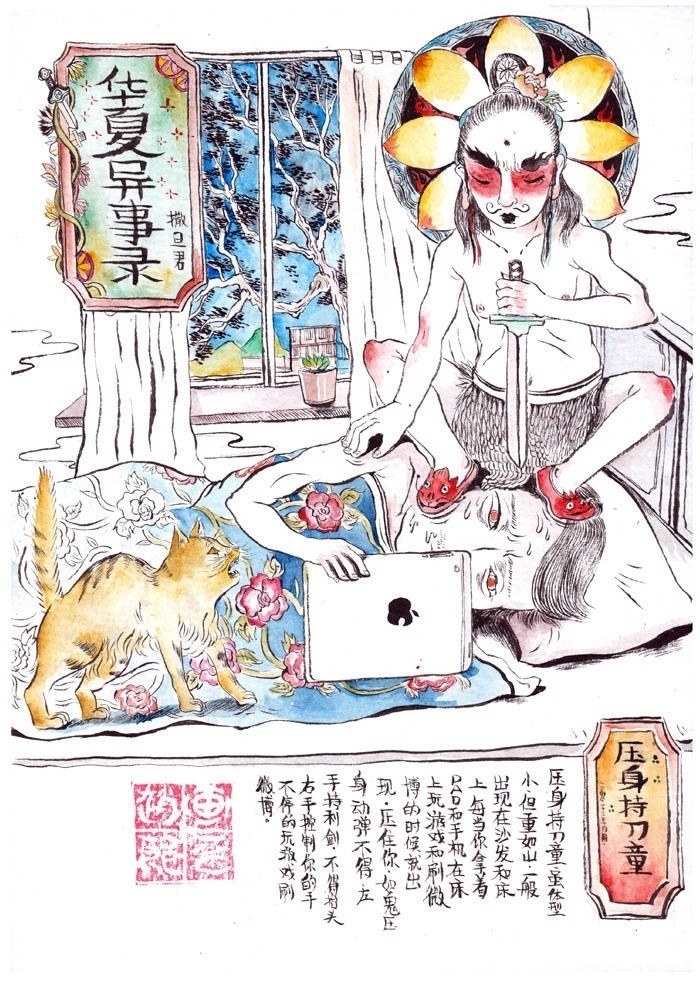 华夏异事录
撒旦君
压身持刀童
压身持刀童:童体型
小但重如山,一般
出现在沙发和床
上每当你拿着
PAD和手机在床
上玩游戏和刷微
博的时候就出
现,压住你,如鬼压
身动弹不得,左
手持利剑不得抬头
右手控制你的手
不停的玩游戏刷
微博。